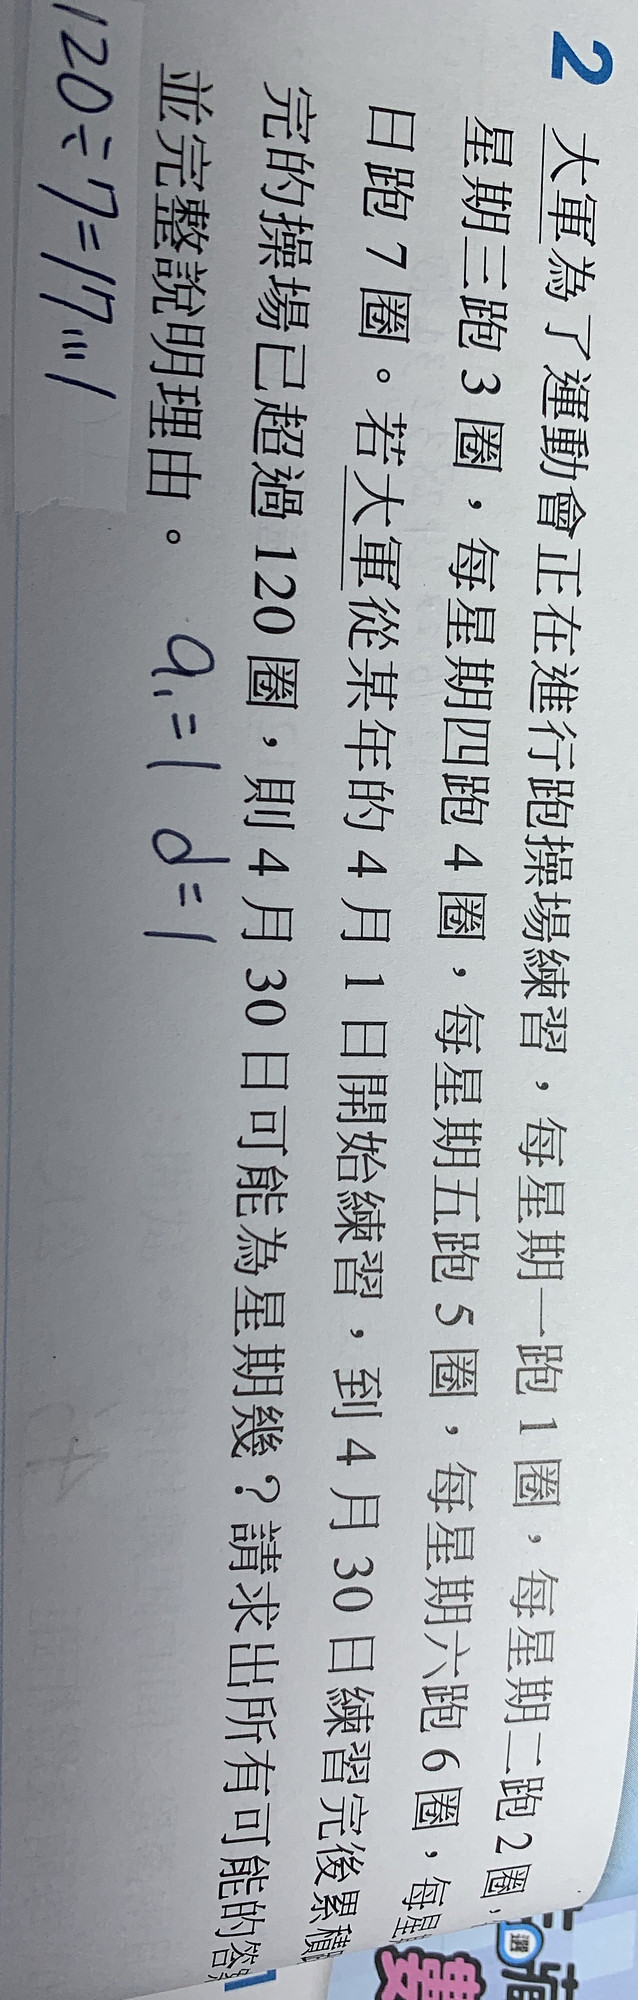 2 大軍為了運動會正在進行跑操場練習，每星期一跑 1 圈，每星期二跑 2 圈，
星期三跑 3 圈，每星期四跑 4 圈，每星期五跑 5 圈，每星期六跑 6 圈，每星
日跑 7 圈。若大軍從某年的 4 月 1 日開始練習，到 4 月 30 日練習完後累積
完的操場已超過 120 圈，則 4 月 30 日可能為星期幾？請求出所有可能的答
並完整說明理由。 a₁=1 d=1
120÷7=17…1
選
數